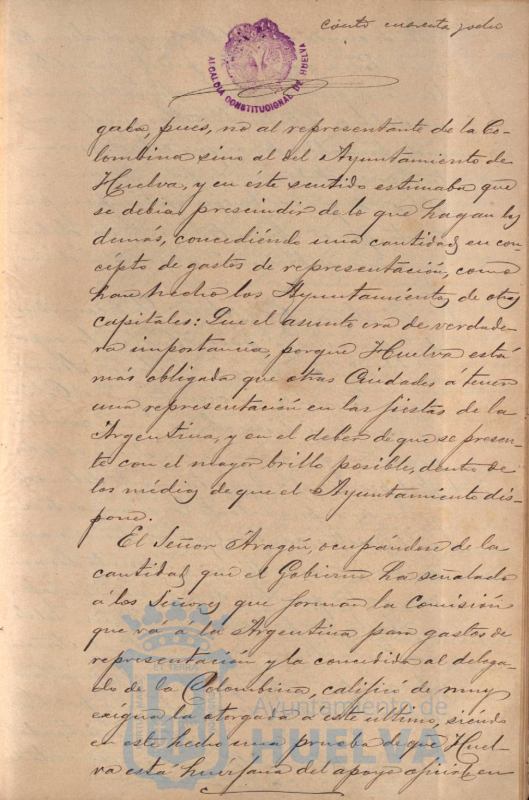 ciento cuarenta y ocho
ALCALDIA CONSTITUCIONAL DE HUELVA
gaba, pués, no al representante de la Co-
lombina sino al del Ayuntamiento de
Huelva, y en éste sentido estimaba que
se debia prescindir de lo que hagan los
demás, concediéndo una cantidad en con-
cépto de gastos de representación, como
han hecho los Ayuntamientos de otras
capitales: Que el asunto era de verdade-
ra importancia, porque Huelva está
más obligada que otras Ciudades á tener
una representación en las fiestas de la
Argentina, y en el deber de que se presen-
te con el mayor brillo posible, dentro de
los médios de que el Ayuntamiento dis-
pone.
El Señor Aragón, ocupándose de la
cantidad que el Gobierno ha señalado
á los Señores que forman la Comisión
que vá á la Argentina para gastos de
representación y la concedida al delega-
do de la Colombina, calificó de muy
exígua la otorgada a este último, siéndo
este hecho una prueba de que Huel-
va está huérfana del apoyo oficial, en
Ayuntamiento de
HUELVA